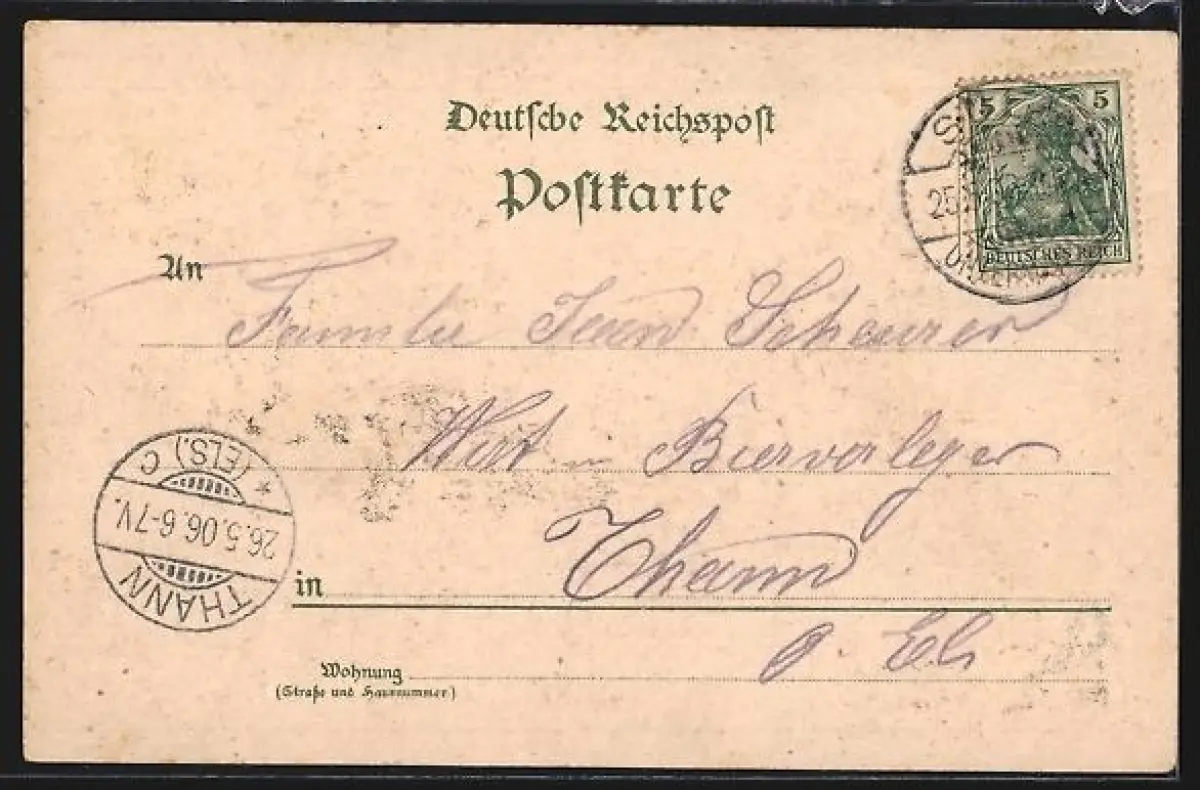 Deutsche Reichspost
Postkarte
5 5
DEUTSCHES REICH
25
An
Familie Jean Scheurer
Wirt u Bierverleger
in Thann
Els
THANN
26.5.06.6-7V.
* (ELS.) C
Wohnung
(Straße und Hausnummer)